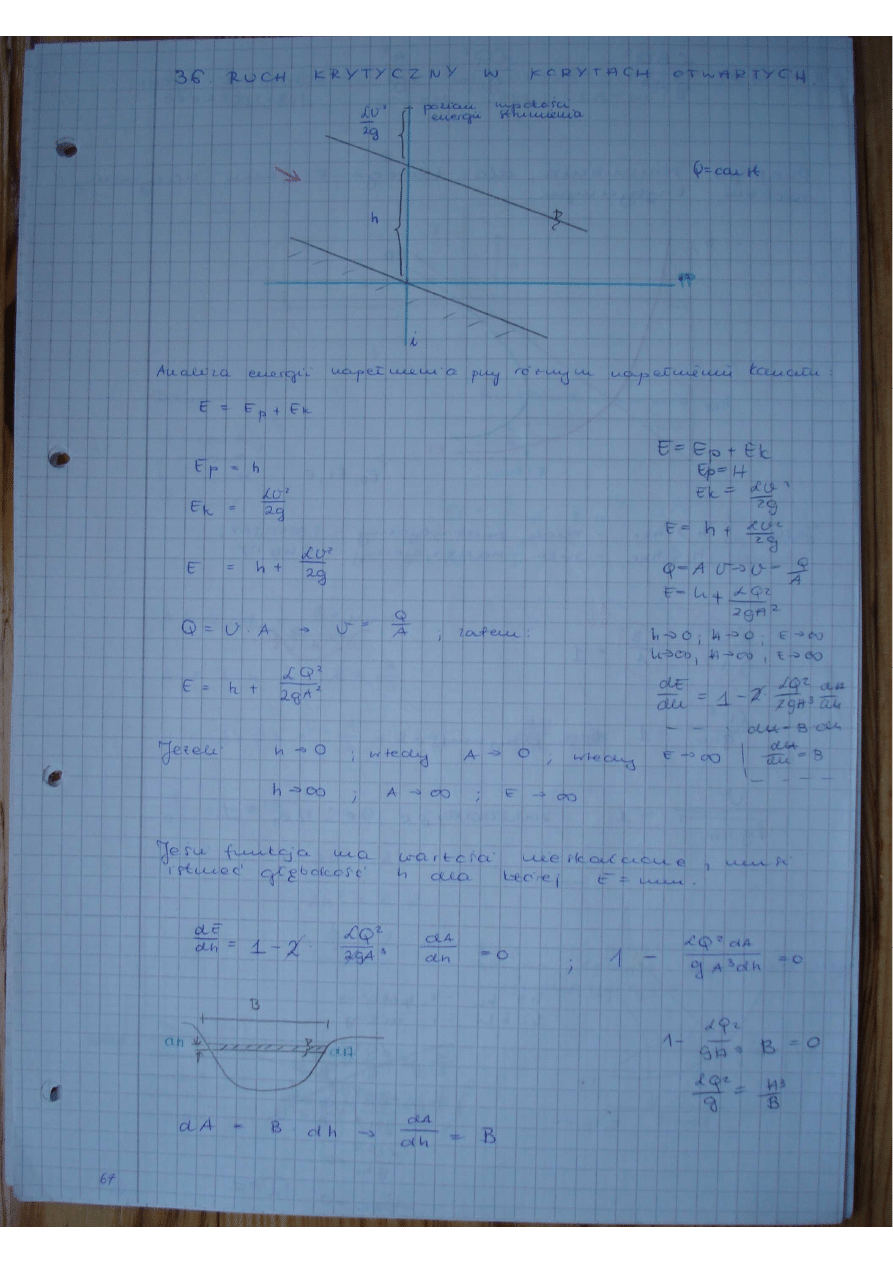 36. RUCH KRYTYCZNY W KORYTACH OTWARTYCH
αv²/2g
poziom
energii
Q=const
h
i
Analiza energii napełnienia przy różnym napełnieniu kanału:
E = Ep + Ek
Ep = h
Ek = αv²/2g
E = h + αv²/2g
Q = v·A → v = Q/A , zatem:
E = h + αQ²/2gA²
Jeżeli h→0 ; wtedy A→0 , wtedy E→∞
h→∞ ; A→∞ ; E→∞
E = Ep + Ek
Ep = H
Ek = αv²/2g
E = h + αv²/2g
Q = A v → v = Q/A
E = h + αQ²/2gA²
h→0 ; A→0 ; E→∞
h→∞ , A→∞ , E→∞
dE/dh = 1 - 2 αQ²/2gA³ dA/dh
dA = B dh
dA/dh = B
Jeśli funkcja ma wartości nieskończone , musi
istnieć głębokość h dla której E = min.
dE/dh = 1 - 2 αQ²/2gA³ dA/dh = 0 ; 1 - αQ² dA/g A³ dh = 0
B
dh
dA
1 - αQ²/gA³ B = 0
αQ²/g = A³/B
dA = B dh → dA/dh = B
67